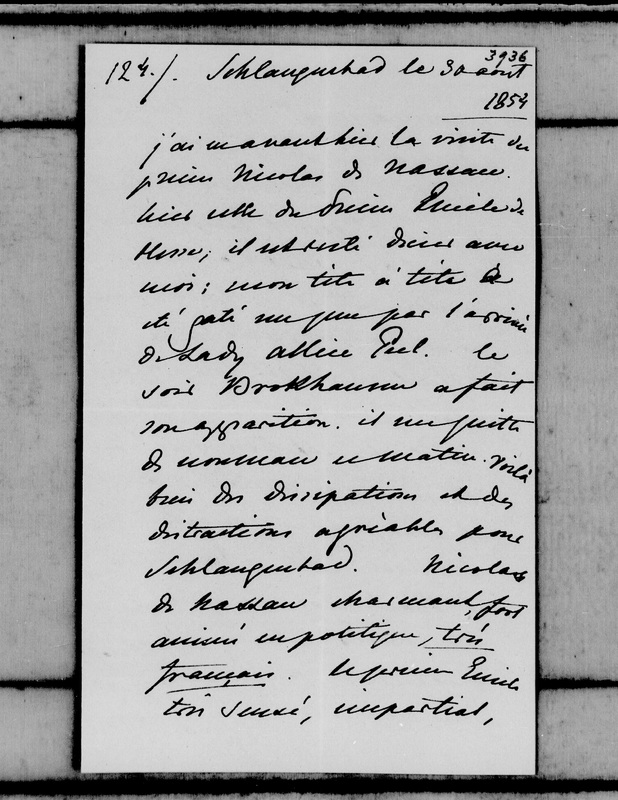 3936
124./. Schlangenbad le 30 août
1854
j'ai eu avant hier la visite du
prince Nicolas de Nassau.
hier celle du Prince Emile de
Hesse, il est resté diner avec
moi; mon tête à tête a
été gâté un peu par l'arrivée
de Lady Allice Peel. le
soir Brokhausen a fait
son apparition. il me quitte
de nouveau ce matin. voilà
bien des dissipations et des
distractions agréables pour
Schlangenbad. Nicolas
de Nassau charmant, fort
animé en politique, très
français. le prince Emile
très sensé, impartial,